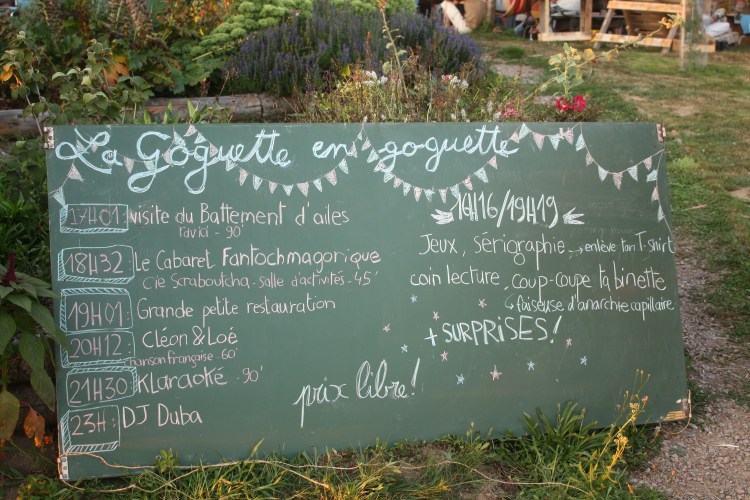 La Goguette en goguette
17H01: visite du Battement d'ailes
ravici - 90'
18H32: Le Cabaret Fantochmagorique
Cie Scraboutcha - salle d'activités - 45'
19H01: Grande petite restauration
20H12: Cléon & Loé
chanson française - 60'
21H30: Klaraoké - 90'
23H: DJ Duba
prix libre!
16H16/19H19
Jeux, Sérigraphie → enlève ton T-shirt
coin lecture, coup-coupe ta binette
↳ faiseuse d'anarchie capillaire
+ SURPRISES!